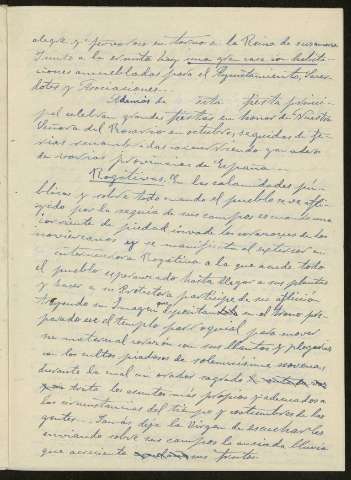 alegre y fervorosa en torno a la Reina de sus amores
Junto a la ermita hay una gran casa con habita-
ciones amuebladas para el Ayuntamiento, Sacer-
dotes y Asociaciones.
Además de esta fiesta princi-
pal celebran grandes fiestas en honor de Nuestra
Señora del Rosario en octubre, seguidas de fe-
rias renombradas concurriendo ganaderos
de varias provincias de España.
Rogativas. En las calamidades pú-
blicas y sobre todo cuando el pueblo se ve afli-
gido por la sequía de sus campos es como una
corriente de piedad invade los corazones de los
y se manifiesta al exterior en
Rogativa a la que acude todo
el pueblo esperando hasta llegar a sus plantas
y hacer a su Protectora partícipe de su aflicción
trayendo su Imagen en el trono pre-
parado en el templo parroquial para mover
su maternal corazón con sus llantos y plegarias
con los cultos piadosos de solemnísima novena,
durante la cual un orador sagrado
trata los asuntos más propios y adecuados a
las circunstancias del tiempo y costumbres de las
gentes. Jamás deja la Virgen de escucharles
enviando sobre sus campos la ansiada lluvia
que acreciente sus frutos.